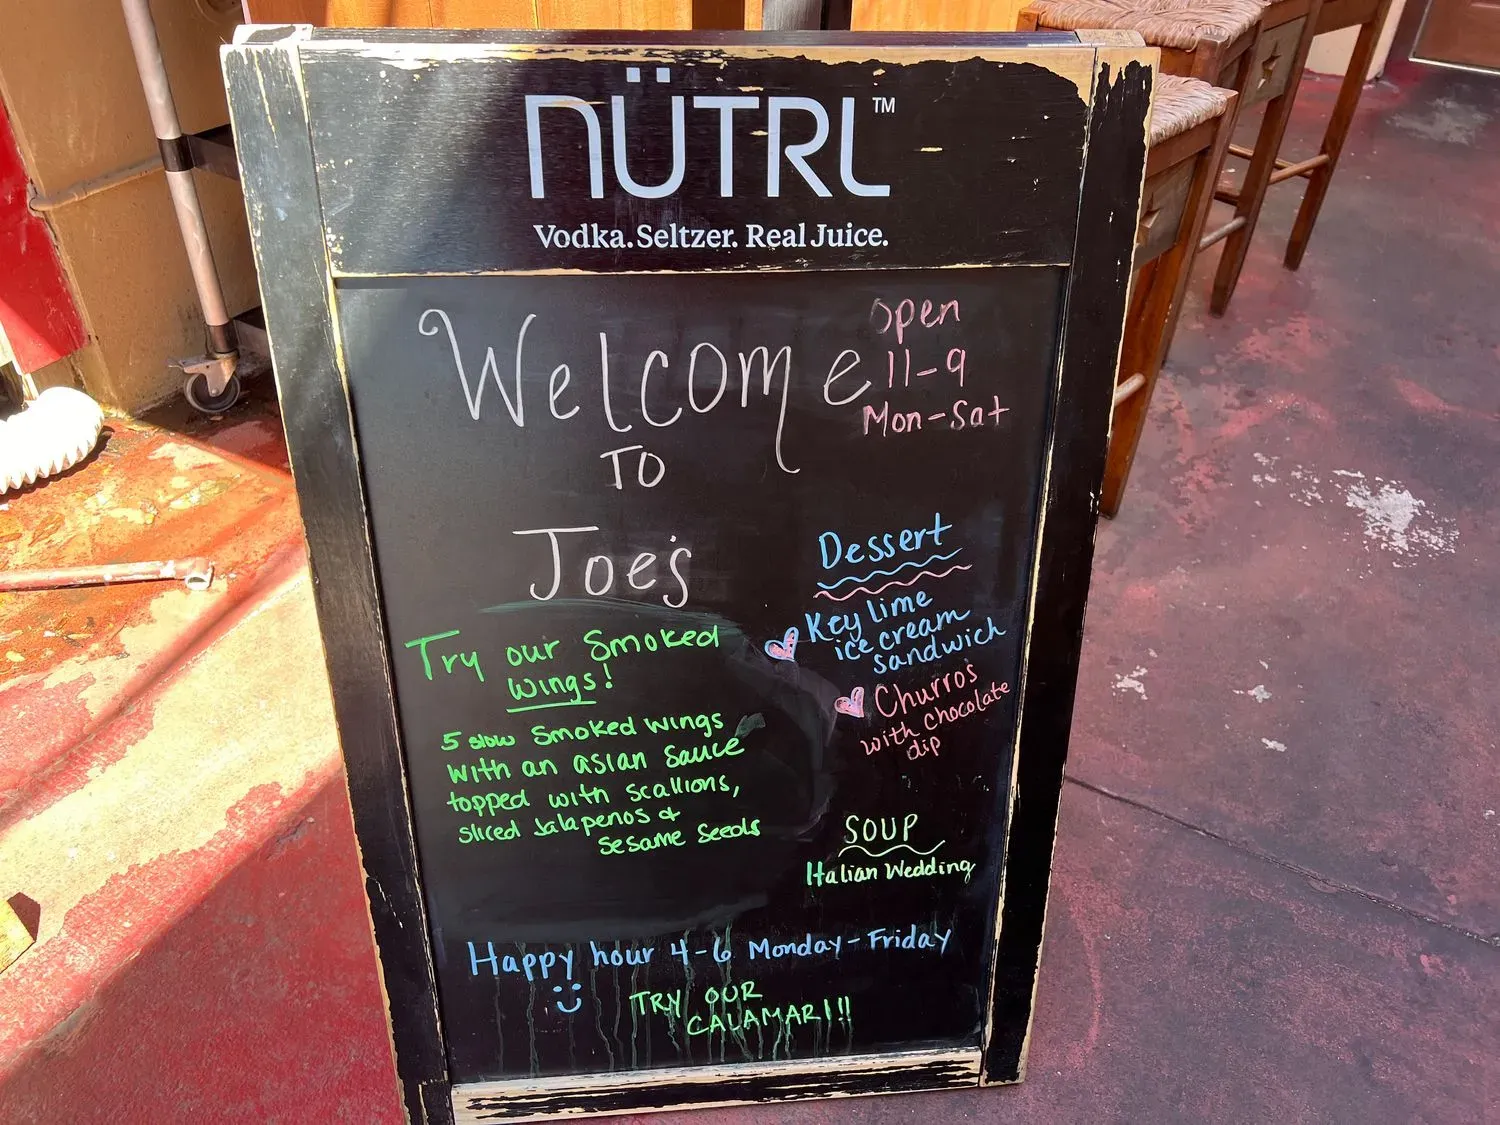 NÜTRL™
Vodka. Seltzer. Real Juice.
Welcome
TO
Joe's
Open
11-9
Mon-Sat
Try our Smoked
Wings!
5 slow Smoked Wings
With an asian Sauce
topped with scallions,
sliced Jalapenos &
Sesame Seeds
Dessert
Key lime
ice cream
sandwich
Churro's
with chocolate
dip
SOUP
Italian Wedding
Happy hour 4-6 Monday-Friday
TRY OUR
CALAMARI!!